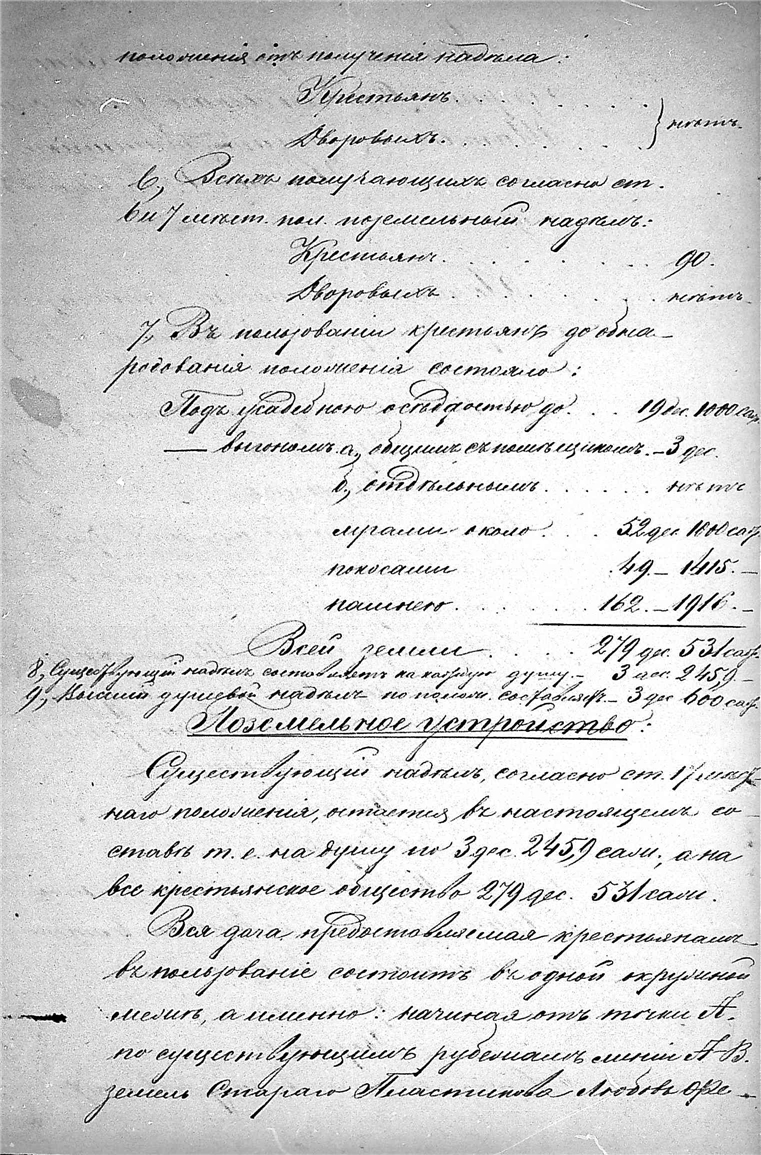 положенія отъ полученія надѣла:
Крестьянъ . . . . } нѣтъ.
Дворовыхъ. . . . .
6, Всѣхъ получающихъ согласно ст.
6 и 7 мѣст. пол. поземельный надѣлъ:
Крестьянъ . . . . . . . 90.
Дворовыхъ . . . . . . . нѣтъ.
7, Въ пользованіи крестьянъ до обна-
родованія положенія состояло:
Подъ усадебною осѣдлостью до . . . 19 дес. 1000 саж.
— выгономъ а, общимъ съ помѣщикомъ. – 3 дес.
б, отдѣльнымъ . . . . . . нѣтъ
около . . . 52 дес. 1600 саж.
покосами 49 – 1415. –
пашнею . . . . . . 162. – 1916. –
Всей земли . . . . 279 дес. 531 саж.
8, Существующій надѣлъ составляетъ на каждую душу – 3 дес. 245,9 –
9, Высшій душевый надѣлъ по полож. составляетъ – 3 дес 600 саж.
Поземельное устройство:
Существующій надѣлъ, согласно ст. 17 мѣст-
наго положенія, остается въ настоящемъ со-
ставѣ т. е. на душу по 3 дес. 245,9 саж., а на
все крестьянское общество 279 дес. 531 саж.
Вся дача предоставляемая крестьянамъ
въ пользованіе состоитъ въ одной окружной
межѣ, а именно: начиная отъ точки А.
по существующимъ рубежамъ линіи А. В.
земель Стараго Пластикова Любовь Ѳе-